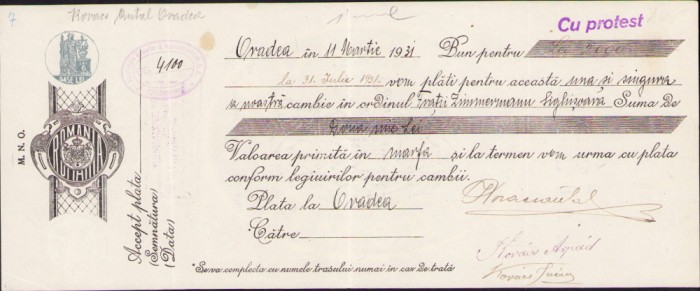 7 Kovacs Antal Oradea
Cu protest
Oradea în 11 Martie 1931 Bun pentru
la 31. Iulie 1931. vom plăti pentru această una și singura
a noastră cambie în ordinul Frații Zimmermann Sighișoara Suma de
Două mii Lei
Valoarea primită în marfă și la termen vom urma cu plata
conform legiuirilor pentru cambii.
Plata la Oradea
Către
*Se va complecta cu numele trasului numai în caz de trată
Kovács Árpád
Kovács
4100
Accept plata
(Semnătura)
(Data)
M. N. O.
ROMANIA